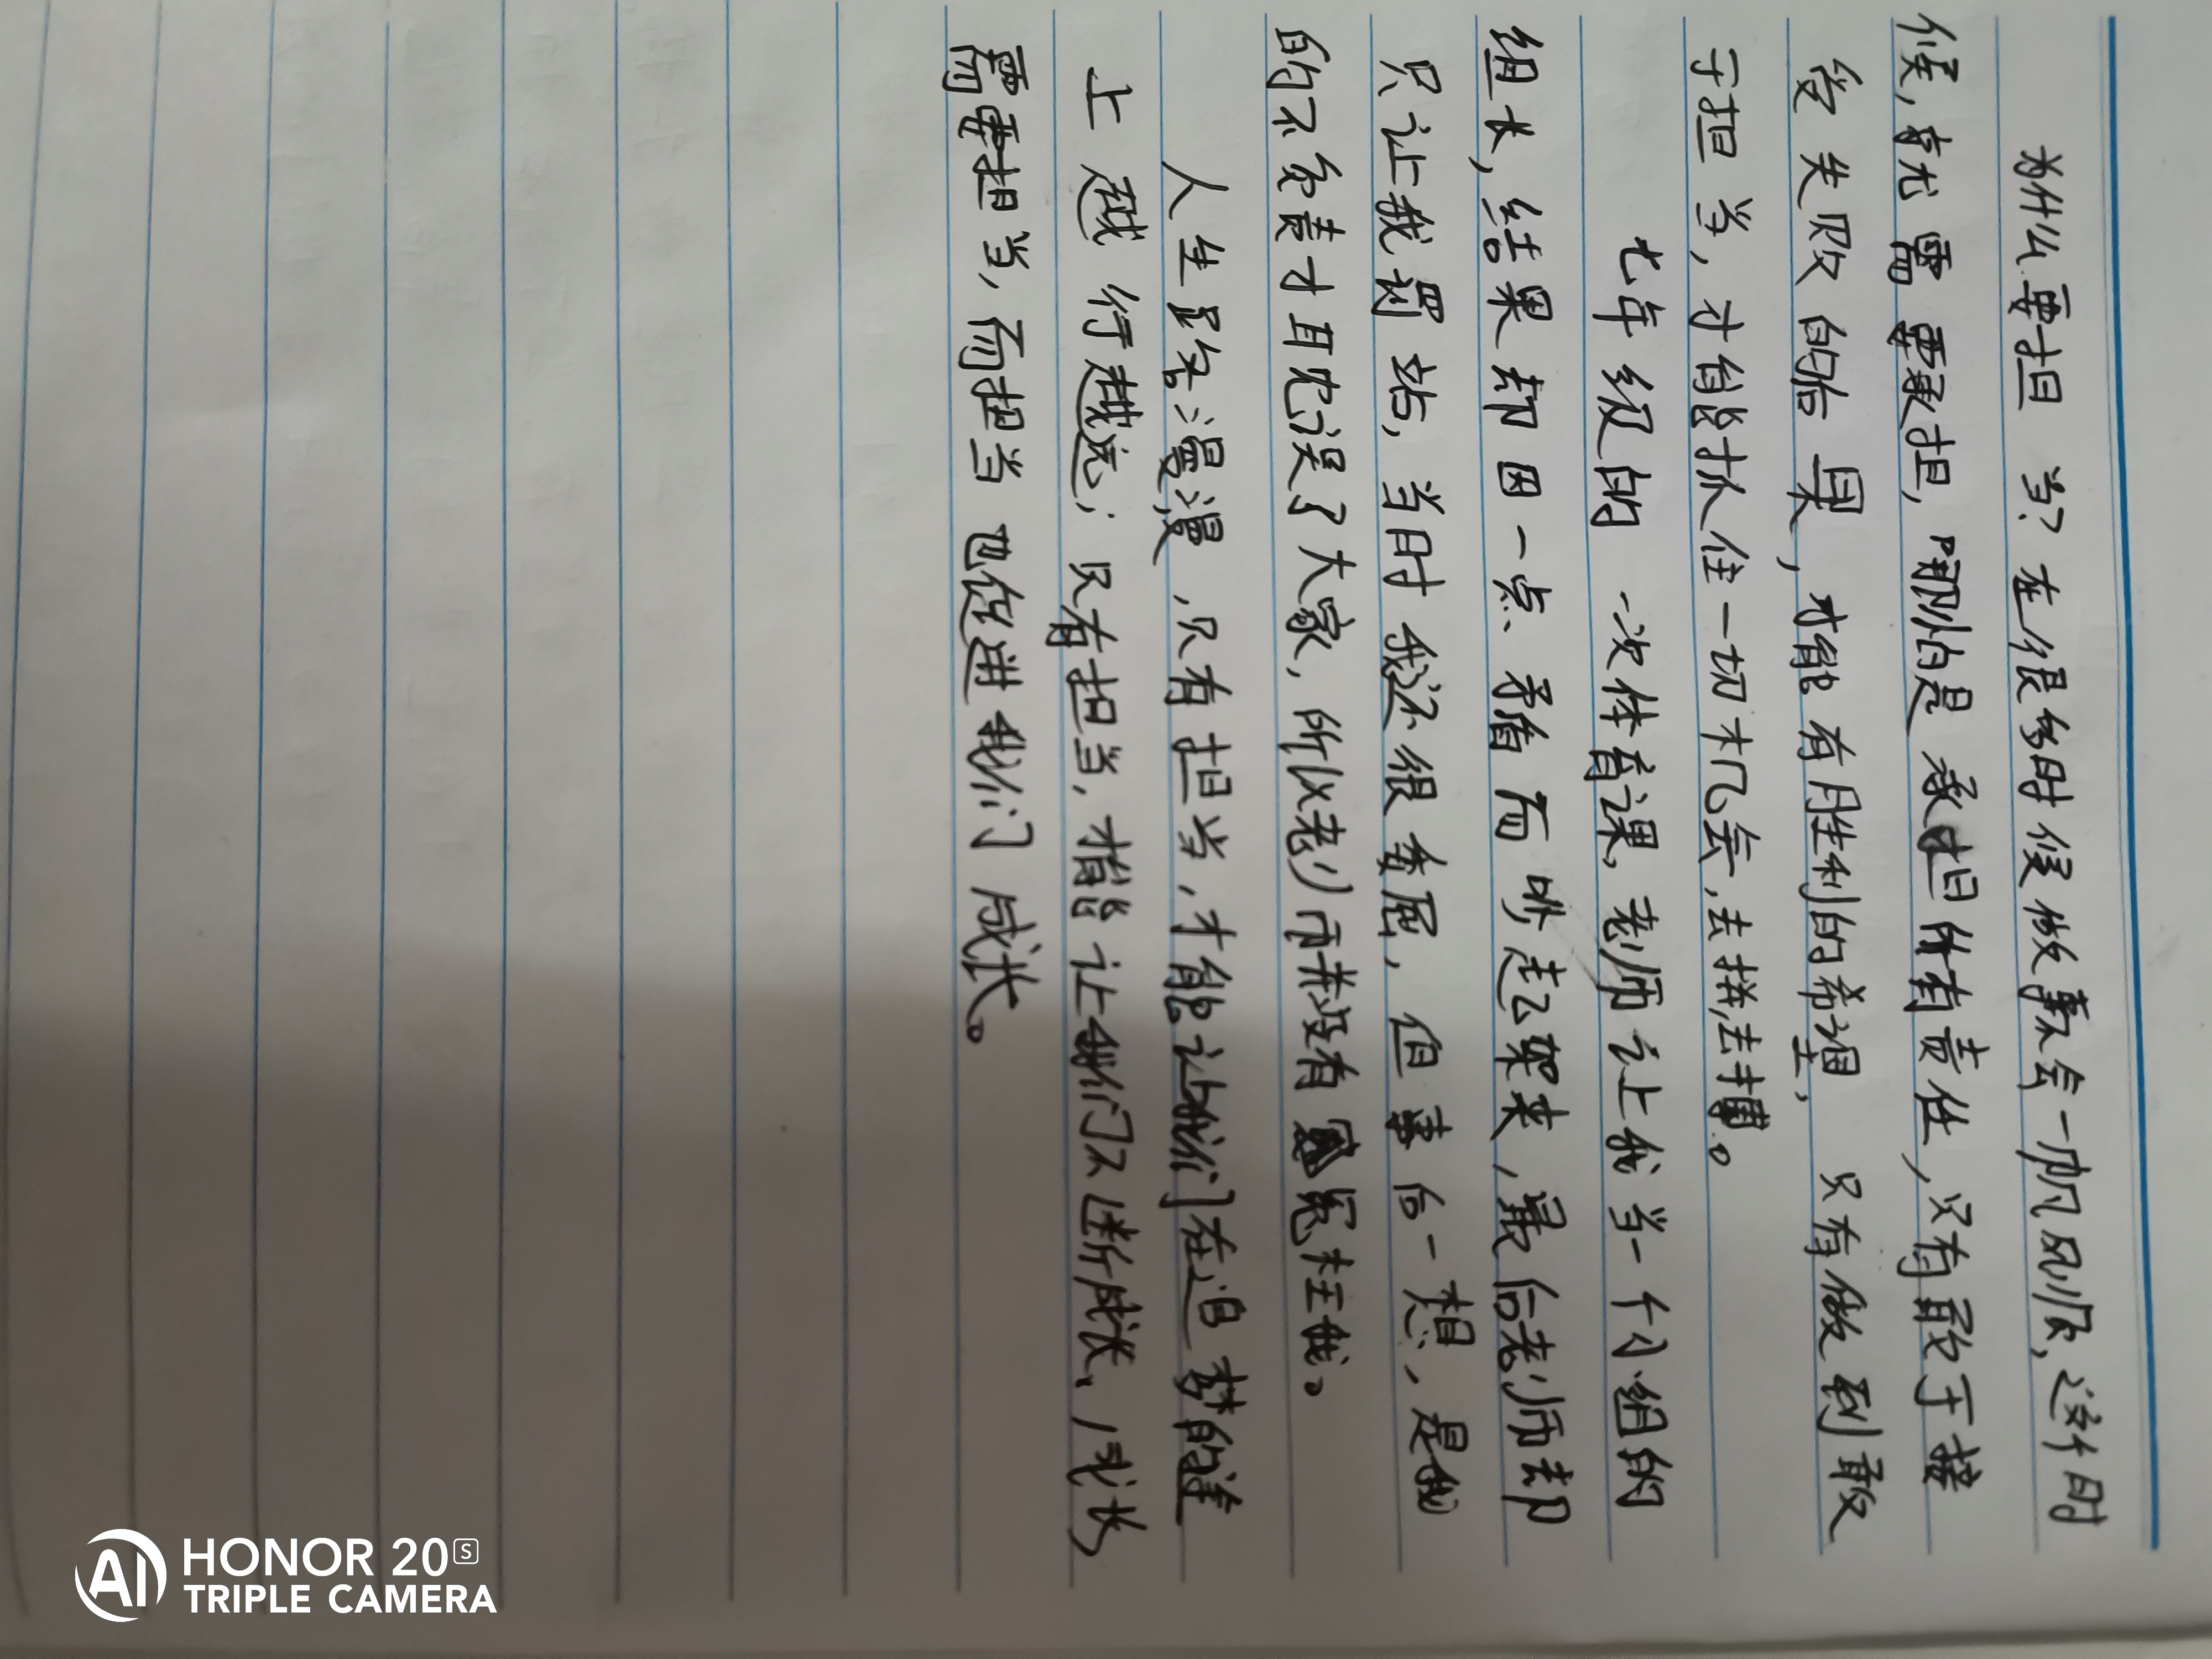 为什么要担当?在很多时候做事会一帆风顺,这个时
候,就需要承担,哪怕是承担所有责任,只有敢于接
受失败的后果,才能有胜利的希望,只有做到敢
于担当,才能抓住一切机会,去拼,去搏。
七年级的一次体育课,老师让我当一个小组的
组长,结果却因一点矛盾而吵起架来,最后老师却
只让我罚站,当时我还很委屈,但事后一想,是我
的不负责才耽误了大家,所以老师并没有冤枉我。
人生路漫漫,只有担当,才能让我们在追梦的途
上越行越远;只有担当,才能让我们不断成长、成长
需要担当,而担当也促进我们成长。
HONOR 20S
TRIPLE CAMERA
AI